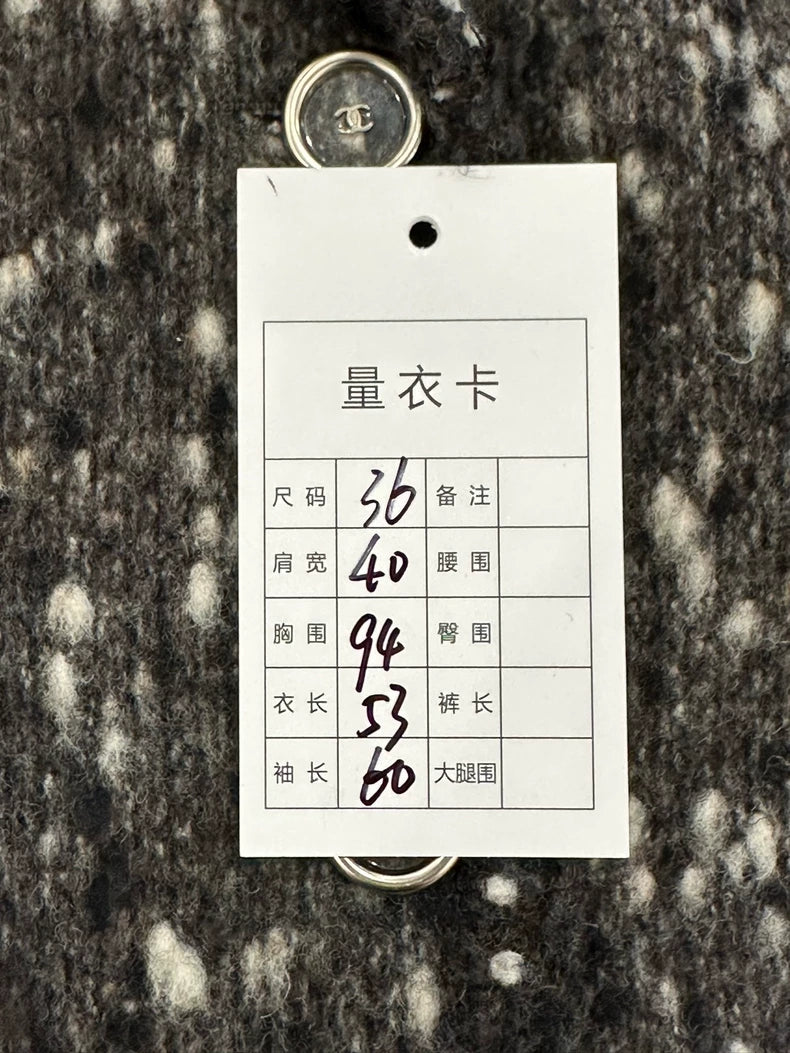 量衣卡
尺码 36 备注
肩宽 40 腰围
胸围 94 臀围
衣长 53 裤长
袖长 60 大腿围